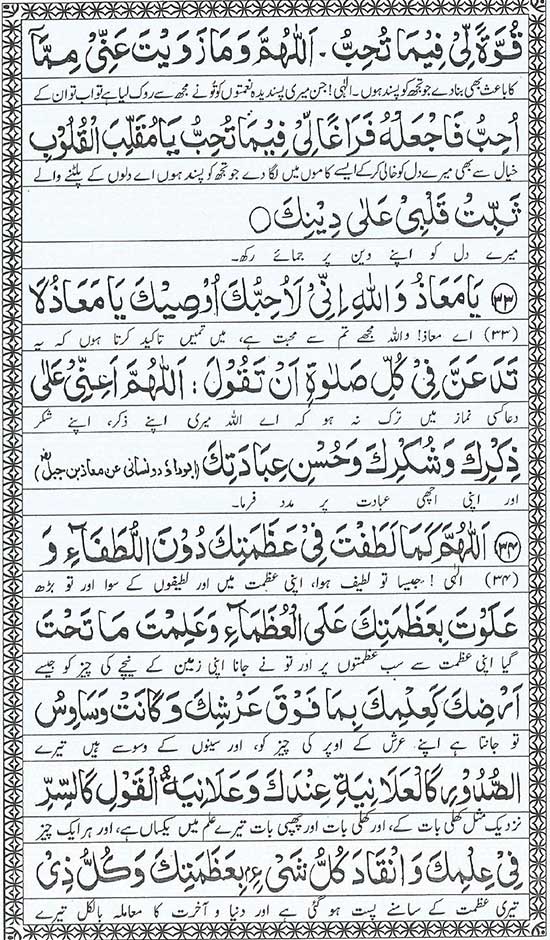 قُوَّةً لِّیْ فِیْمَا تُحِبُّ ۔ اَللّٰهُمَّ وَمَا زَوَیْتَ عَنِّیْ مِمَّآ
کا باعث بھی بنا دے جو تجھ کو پسند ہوں۔ الٰہی! جن میری پسندیدہ نعمتوں کو تُو نے مجھ سے روک لیا ہے تو اب تو ان کے
اُحِبُّ فَاجْعَلْهُ فَرَاغًا لِّیْ فِیْمَا تُحِبُّ یَا مُقَلِّبَ الْقُلُوْبِ
خیال سے بھی میرے دل کو خالی کر کے ایسے کاموں میں لگا دے جو تجھ کو پسند ہوں اے دلوں کے پلٹنے والے
ثَبِّتْ قَلْبِیْ عَلٰی دِیْنِكَ ○
میرے دل کو اپنے دین پر جمائے رکھ۔
﴿۳۳﴾ یَا مَعَاذُ وَاللّٰهِ اِنِّیْ لَاُحِبُّكَ اُوْصِیْكَ یَا مَعَاذُ لَا
(۳۳) اے معاذ! واللہ مجھے تم سے محبت ہے، میں تمہیں تاکید کرتا ہوں کہ یہ
تَدَعَنَّ فِیْ كُلِّ صَلٰوةٍ اَنْ تَقُوْلَ : اَللّٰهُمَّ اَعِنِّیْ عَلٰی
دعا کسی نماز میں ترک نہ ہو کہ اے اللہ میری اپنے ذکر، اپنے شکر
ذِكْرِكَ وَشُكْرِكَ وَحُسْنِ عِبَادَتِكَ (ابوداؤد و نسائی عن معاذ بن جبلؓ)
اور اپنی اچھی عبادت پر مدد فرما۔
﴿۳۴﴾ اَللّٰهُمَّ كَمَا لَطَفْتَ فِیْ عَظَمَتِكَ دُوْنَ اللُّطَفَآءِ وَ
(۳۴) الٰہی! جیسا تو لطیف ہوا، اپنی عظمت میں اور لطیفوں کے سوا اور تو بڑھ
عَلَوْتَ بِعَظَمَتِكَ عَلَی الْعُظَمَآءِ وَعَلِمْتَ مَا تَحْتَ
گیا اپنی عظمت سے سب عظمتوں پر اور تو نے جانا اپنی زمین کے نیچے کی چیز کو جیسے
اَرْضِكَ كَعِلْمِكَ بِمَا فَوْقَ عَرْشِكَ وَكَانَتْ وَسَاوِسُ
تو جانتا ہے اپنے عرش کے اوپر کی چیز کو، اور سینوں کے وسوسے ہیں تیرے
الصُّدُوْرِ كَالْعَلَانِیَةِ عِنْدَكَ وَعَلَانِیَةُ الْقَوْلِ كَالسِّرِّ
نزدیک مثل کھلی بات کے، اور کھلی بات اور چھپی بات تیرے علم میں یکساں ہے، اور ہر ایک چیز
فِیْ عِلْمِكَ وَانْقَادَ كُلُّ شَیْءٍ بِعَظَمَتِكَ وَكُلُّ ذِیْ
تیری عظمت کے سامنے پست ہو گئی ہے اور دنیا و آخرت کا معاملہ بالکل تیرے